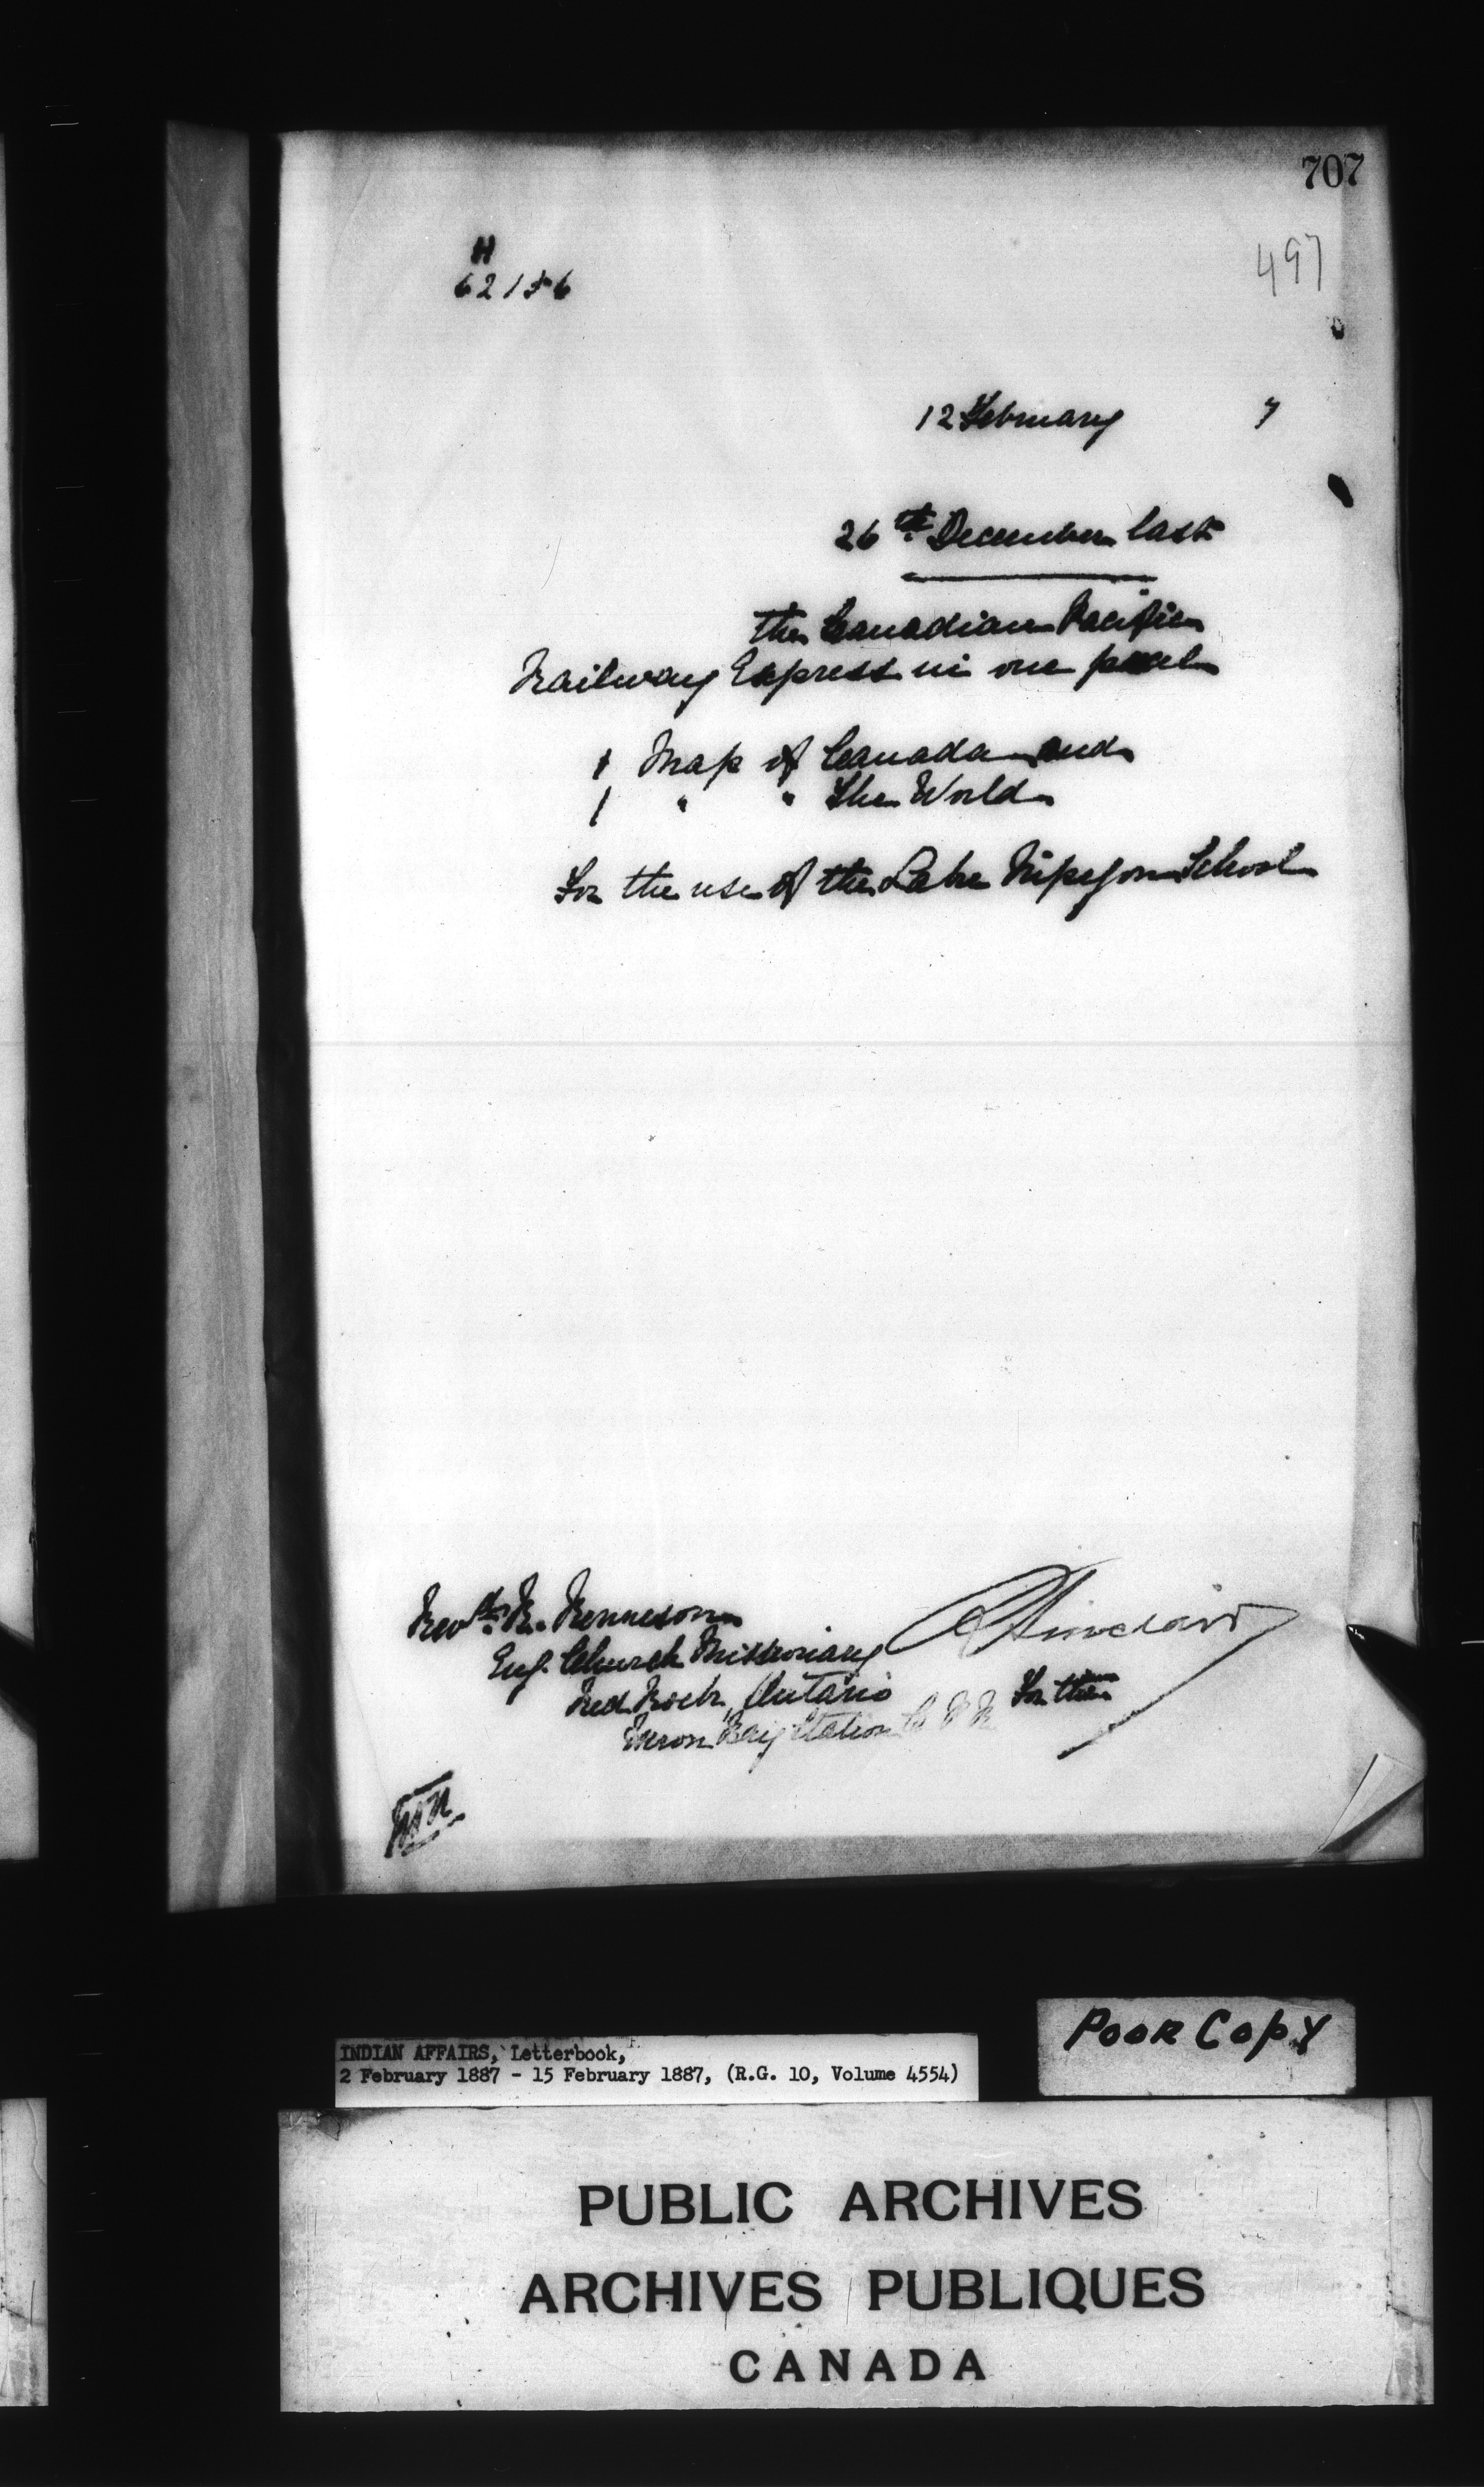 707
497
H
62156
12 February 7
26th December last
the Canadian Pacific
Railway Express in one parcel
1 Map of Canada and
1 " " The World
For the use of the Lake Nipegon School
Revd. R. Renneson
Eng. Church Missionary
Red Rock, Ontario
Bay Station C.P.R.
R Sinclair
For the
Poor Copy
INDIAN AFFAIRS, Letterbook,
2 February 1887 - 15 February 1887, (R.G. 10, Volume 4554)
PUBLIC ARCHIVES
ARCHIVES PUBLIQUES
CANADA